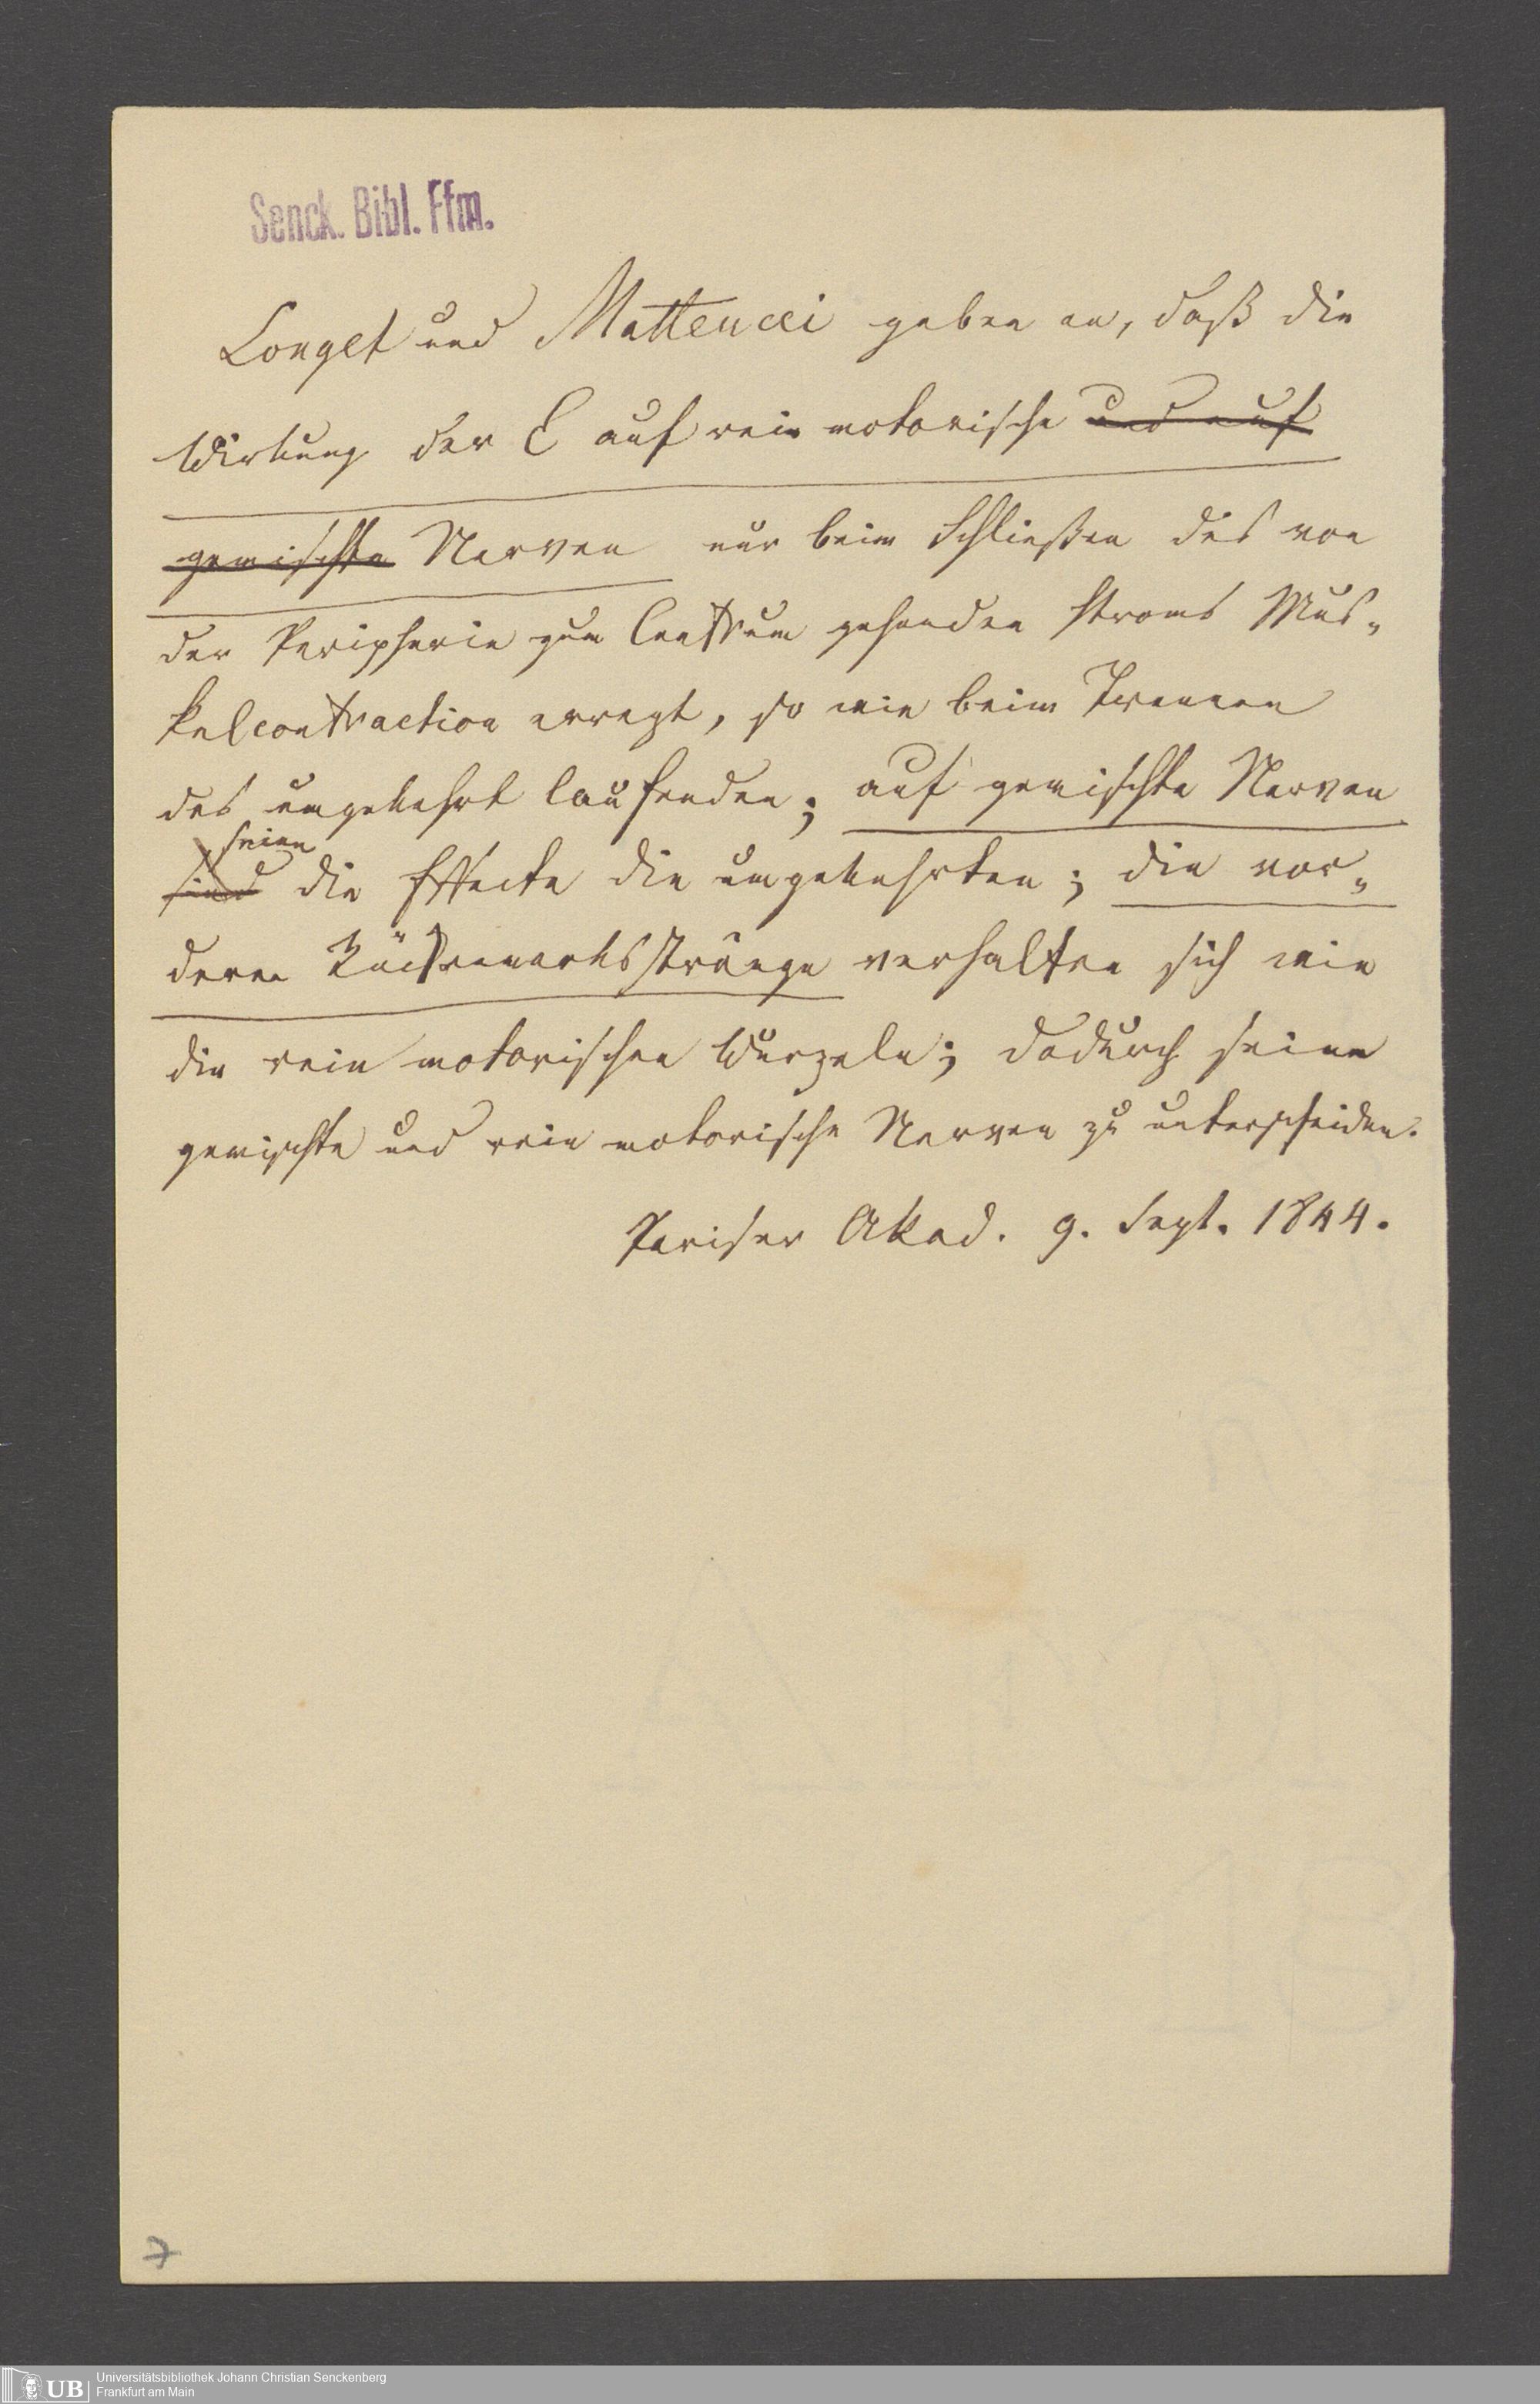 Senck. Bibl. Ffm.
Longet und Matteucci geben an, daß die
Wirkung der E auf rein motorische und auf
gemischte Nerven nur beim Schließen des von
der Peripherie zum Centrum gehenden Stroms Mus-
kelcontraction erregt, so wie beim Trennen
des umgekehrt laufenden; auf gemischte Nerven
seien
sind die Effecte die umgekehrten; die vor-
dern Rückenmarksstränge verhalten sich wie
die rein motorischen Wurzeln; dadurch seien
gemischte und rein motorische Nerven zu unterscheiden.
Pariser Akad. 9. Sept. 1844.
7
UB Universitätsbibliothek Johann Christian Senckenberg
Frankfurt am Main